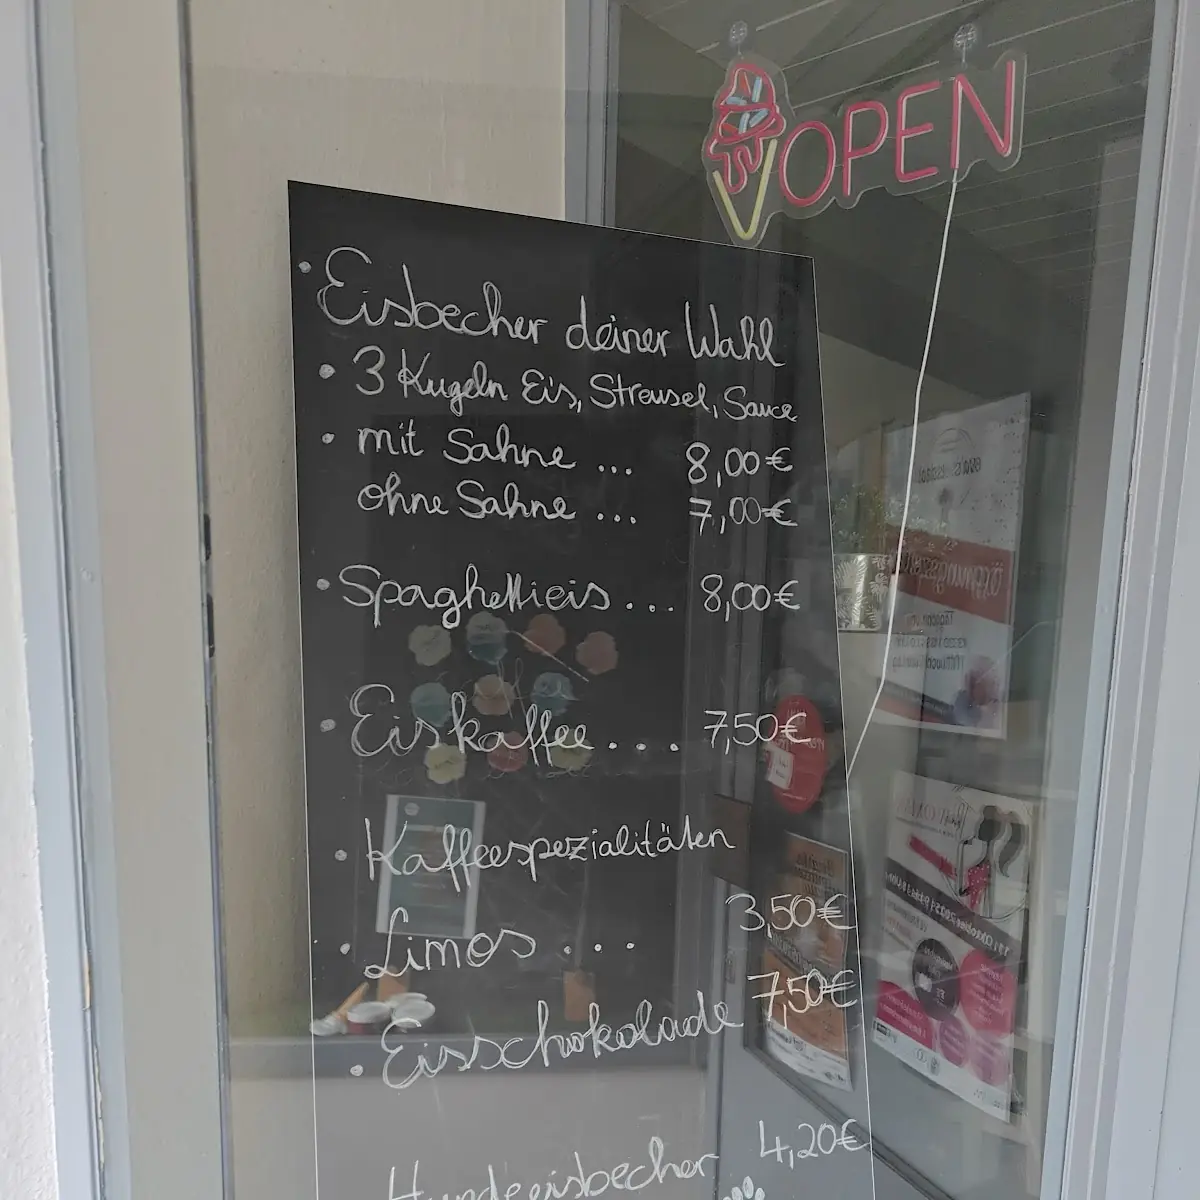 OPEN
Eisbecher deiner Wahl
3 Kugeln Eis, Streusel, Sauce
mit Sahne ... 8,00€
ohne Sahne ... 7,00€
Spaghettieis ... 8,00€
Eiskaffee .... 7,50€
Kaffeespezialitäten
Limos ... 3,50€
Eisschokolade 7,50€
Hundeeisbecher 4,20€
Öffnungszeiten